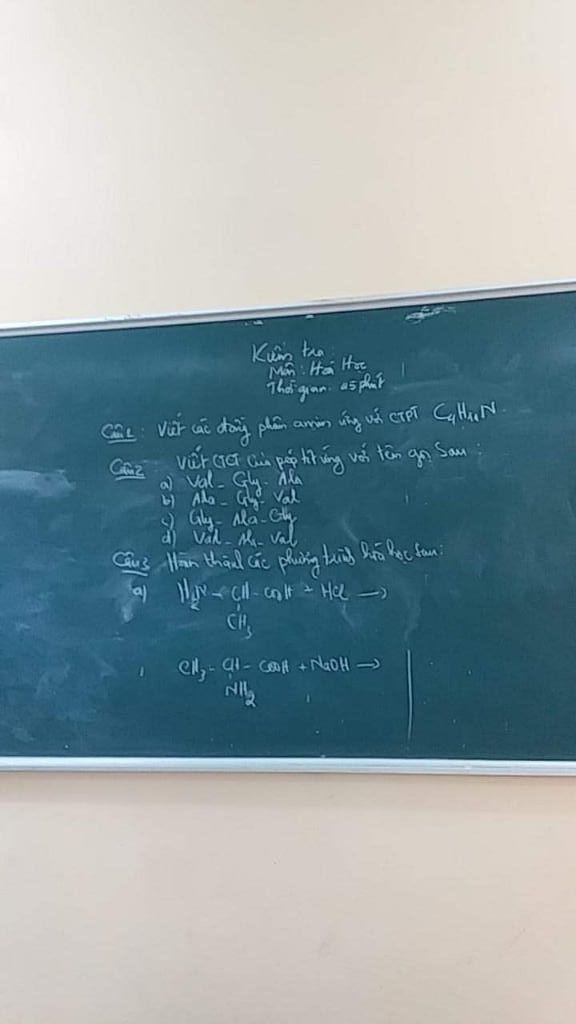 Kiểm tra
Môn: Hoá Học
Thời gian: 45 phút
Câu 1: Viết các đồng phân amin ứng với CTPT C₄H₁₁N.
Câu 2 Viết CTCT của peptit ứng với tên gọi sau:
a) Val - Gly - Ala
b) Ala - Gly - Val
c) Gly - Ala - Gly
d) Val - Ala - Val
Câu 3 Hoàn thành các phương trình hoá học sau:
a) H₂N - CH - COOH + HCl →
CH₃
CH₃ - CH - COOH + NaOH →
NH₂